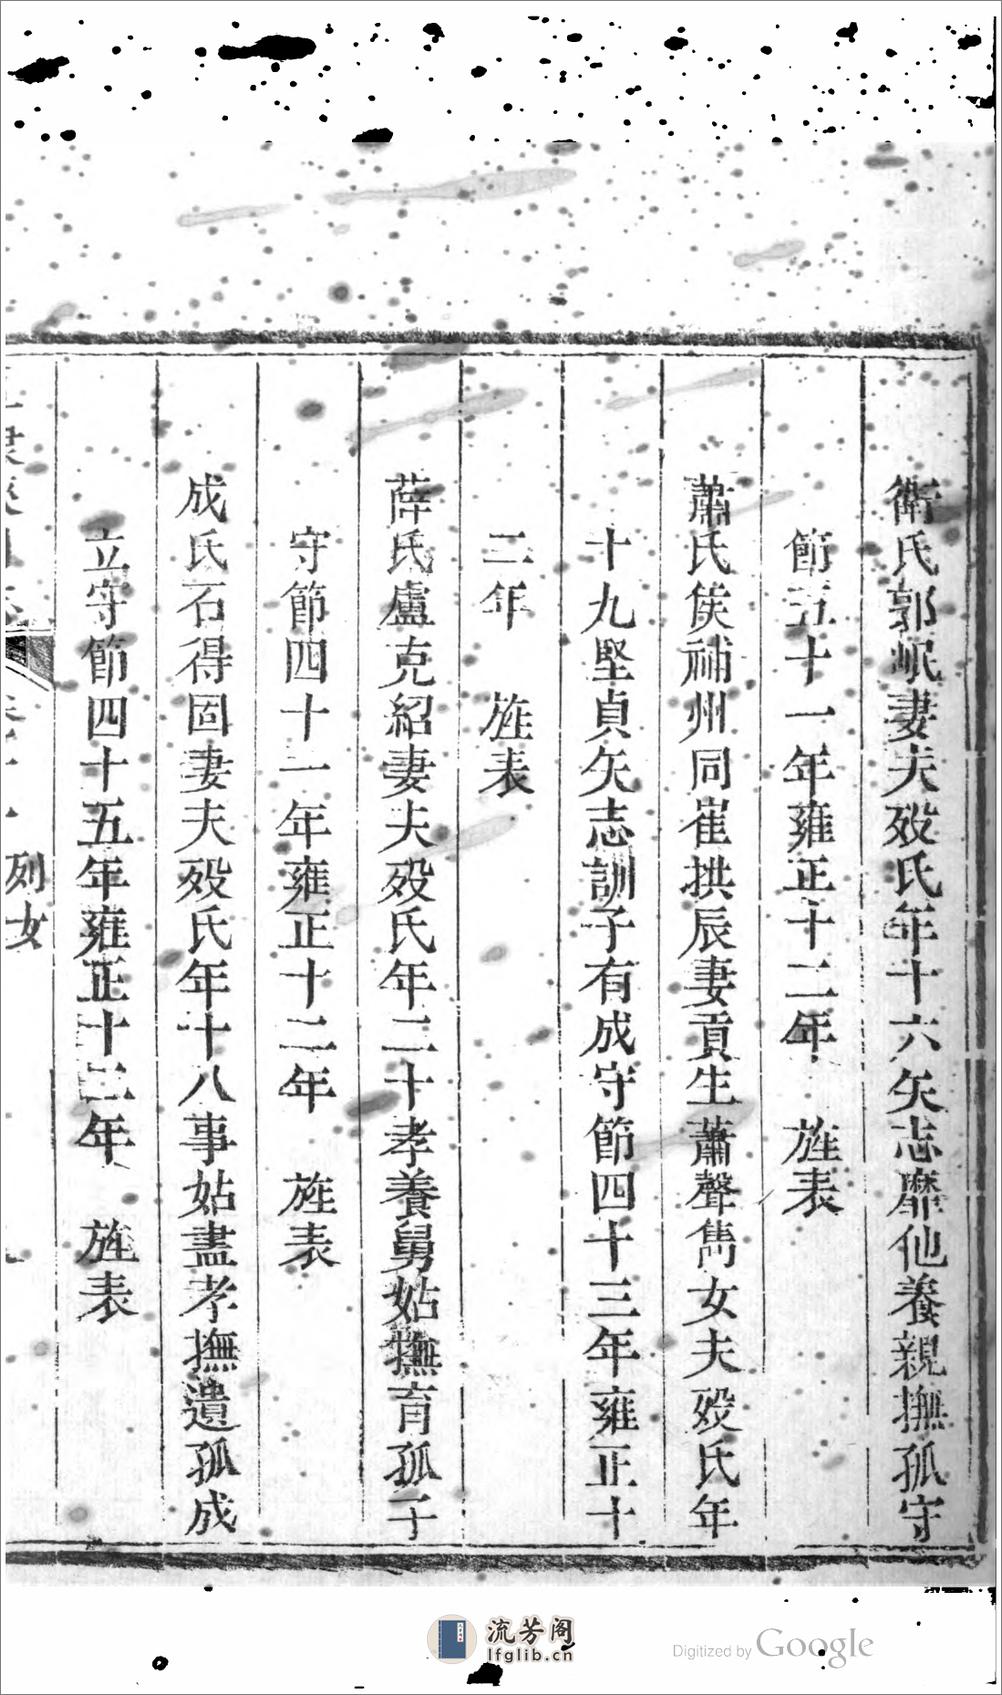 衛氏郭岷妻夫歿氏年十六矢志靡他養親撫孤守
節五十一年雍正十二年　旌表
蕭氏候補州同崔拱辰妻貢生蕭聲雋女夫歿氏年
十九堅貞矢志訓子有成守節四十三年雍正十
二年　旌表
薛氏盧克紹妻夫歿氏年二十孝養舅姑撫育孤子
守節四十一年雍正十二年　旌表
成氏石得固妻夫歿氏年十八事姑盡孝撫遺孤成
立守節四十五年雍正十二年　旌表
列女
流芳阁
lfglib.cn
Digitized by Google